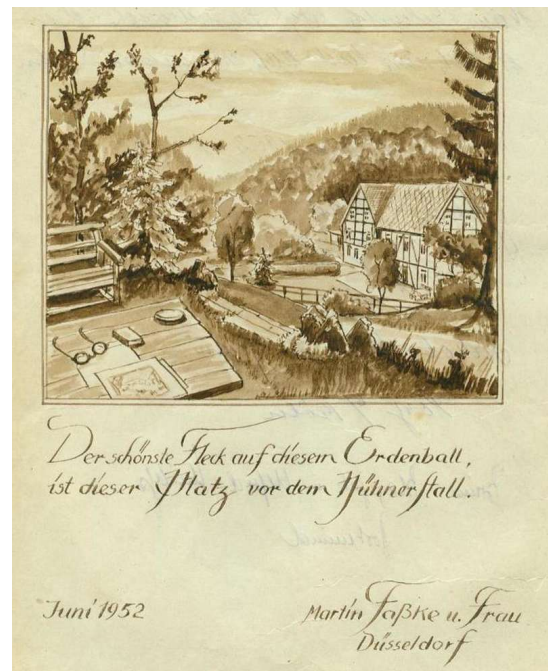 Der schönste Fleck auf diesem Erdenball,
ist dieser Platz vor dem Hühnerstall.
Juni 1952
Martin Faßke u. Frau
Düsseldorf